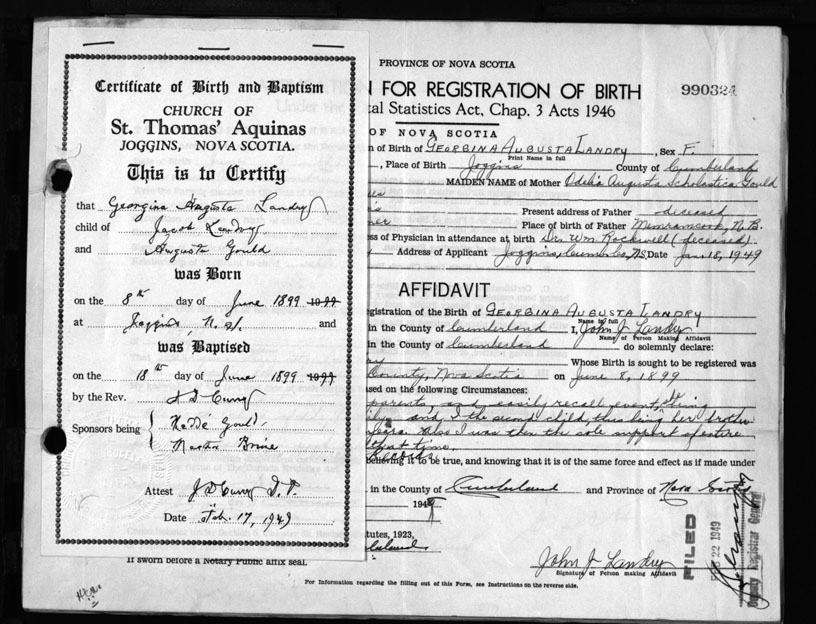 Certificate of Birth and Baptism
CHURCH OF
St. Thomas' Aquinas
JOGGINS, NOVA SCOTIA.
This is to Certify
that Georgina Augusta Landry
child of Jacob Landry
and Augusta Gould
was Born
on the 8th day of June 1899
at Joggins, N.S. and
was Baptised
on the 18th day of June 1899
by the Rev. J D Curry
Sponsors being Gould
Martha
Attest J D Curry
Date Feb. 17, 1949
PROVINCE OF NOVA SCOTIA
N FOR REGISTRATION OF BIRTH 990324
tal Statistics Act, Chap. 3 Acts 1946
OF NOVA SCOTIA
n of Birth of GEORGINA AUGUSTA LANDRY, Sex F.
Print Name in full
, Place of Birth Joggins County of Cumberland
MAIDEN NAME of Mother Odelia Augusta Scholastica Gould
Present address of Father deceased
Place of birth of Father Memramcook, N.B.
ss of Physician in attendance at birth Dr. Wm. Rockwell (deceased)
Address of Applicant Joggins, Cumb. Co., N.S. Date Jan. 18, 1949
AFFIDAVIT
egistration of the Birth of GEORGINA AUGUSTA LANDRY
Name in full
in the County of Cumberland I, John J Landry
Name of Person Making Affidavit
in the County of Cumberland do solemnly declare:
Whose Birth is sought to be registered was
County, Nova Scotia on June 8, 1899
sed on the following Circumstances:
parents, and easily recall event,
and, I the second child, thus being her brother
Also I was then the sole support of entire
that time.
believing it to be true, and knowing that it is of the same force and effect as if made under
in the County of Cumberland and Province of Nova Scotia
194
tutes, 1923,
If sworn before a Notary Public affix seal.
John J Landry
Signature of Person making Affidavit
For Information regarding the filling out of this Form, see Instructions on the reverse side.
FILED
FEB 22 1949
Deputy Registrar General